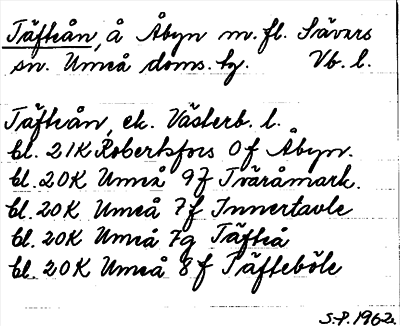 Täfteån, å Åbyn m. fl. Sävars
sn. Umeå doms. hg. Vb. l.
Täfteån, ek. Västerb. l.
bl. 21K Robertsfors 0f Åbyn.
bl. 20K Umeå 9f Tväråmark.
bl. 20K Umeå 7f Innertavle
bl. 20K Umeå 7g Täfteå
bl. 20K Umeå 8f Täfteböle
S.P. 1962.